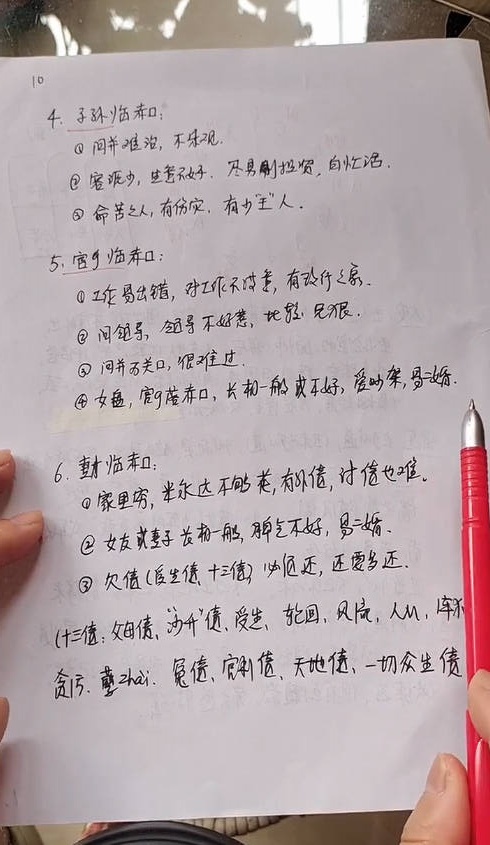 10
4. 子孙临赤口:
① 问病难治, 不乐观.
② 客源少, 生意不好. 不易刚投资, 白忙活.
③ 命苦之人, 有伤灾, 有少"主"人.
5. 官鬼临赤口:
① 工作易出错, 对工作不满意, 有改行之象.
② 问领导, 领导不好惹, 比较 兄狠.
③ 问病为关口, 很难过.
④ 女盘, 官鬼落赤口, 长相一般 或不好, 爱吵架, 易二婚.
6. 妻财临赤口:
① 家里穷, 半永达不够花, 有外债, 讨债也难。
② 女友或妻子 长相一般, 脾气不好, 易二婚.
③ 欠债 (受生债, 十三债) 必须还, 还要多还.
(十三债: 父母债、 债、受生、轮回、风流、人儿、
贪污、孽zhai、冤债、官利债、天地债、一切众生债